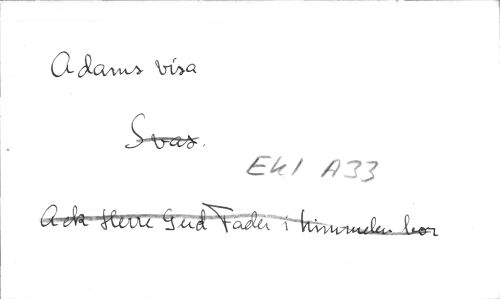 Adams visa
Svar.
EK1 A33
Ack Herre Gud Fader i himmelen bor